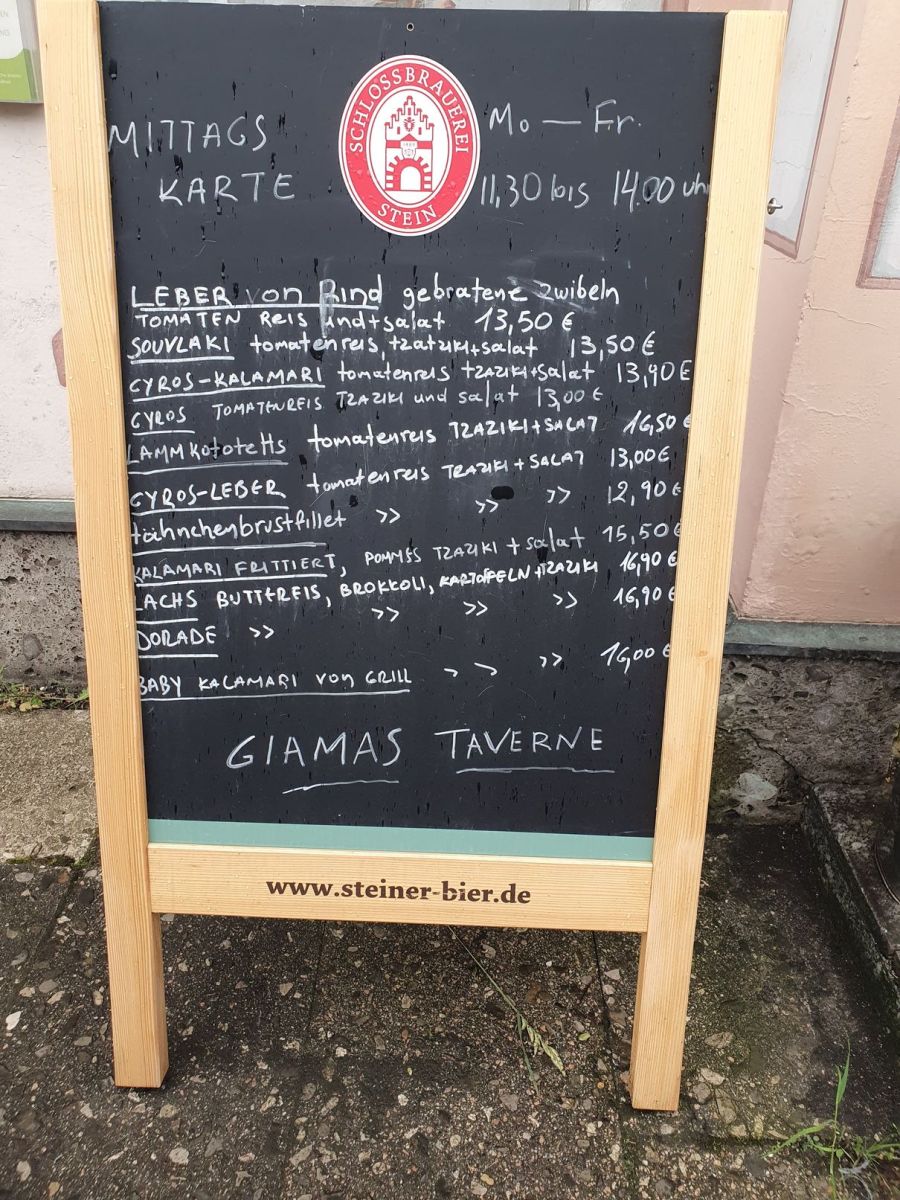 SCHLOSSBRAUEREI
STEIN
MITTAGS
KARTE
Mo — Fr.
11,30 bis 14.00 uhr
LEBER von Rind gebratene zwibeln
TOMATEN REIS und+salat 13,50 €
SOUVLAKI tomatenreis, tzatziki+salat 13,50 €
GYROS-KALAMARI tomatenreis TZAZIKI+salat 13,90 €
GYROS TOMATENREIS TZAZIKI und salat 13,00 €
LAMMKototetts tomatenreis TZAZIKI+SALAT 16,50 €
GYROS-LEBER tomatenreis TZAZIKI+SALAT 13,00€
Hähnchenbrustfillet >> >> >> 12,90 €
KALAMARI FRITTIERT, POMMES TZAZIKI + salat 15,50 €
LACHS BUTTEREIS, BROKKOLI, KARTOFFELN+TZAZIKI 16,90 €
DORADE >> >> >> >> 16,90 €
BABY KALAMARI von GRILL >> >> 16,00 €
GIAMAS TAVERNE
www.steiner-bier.de